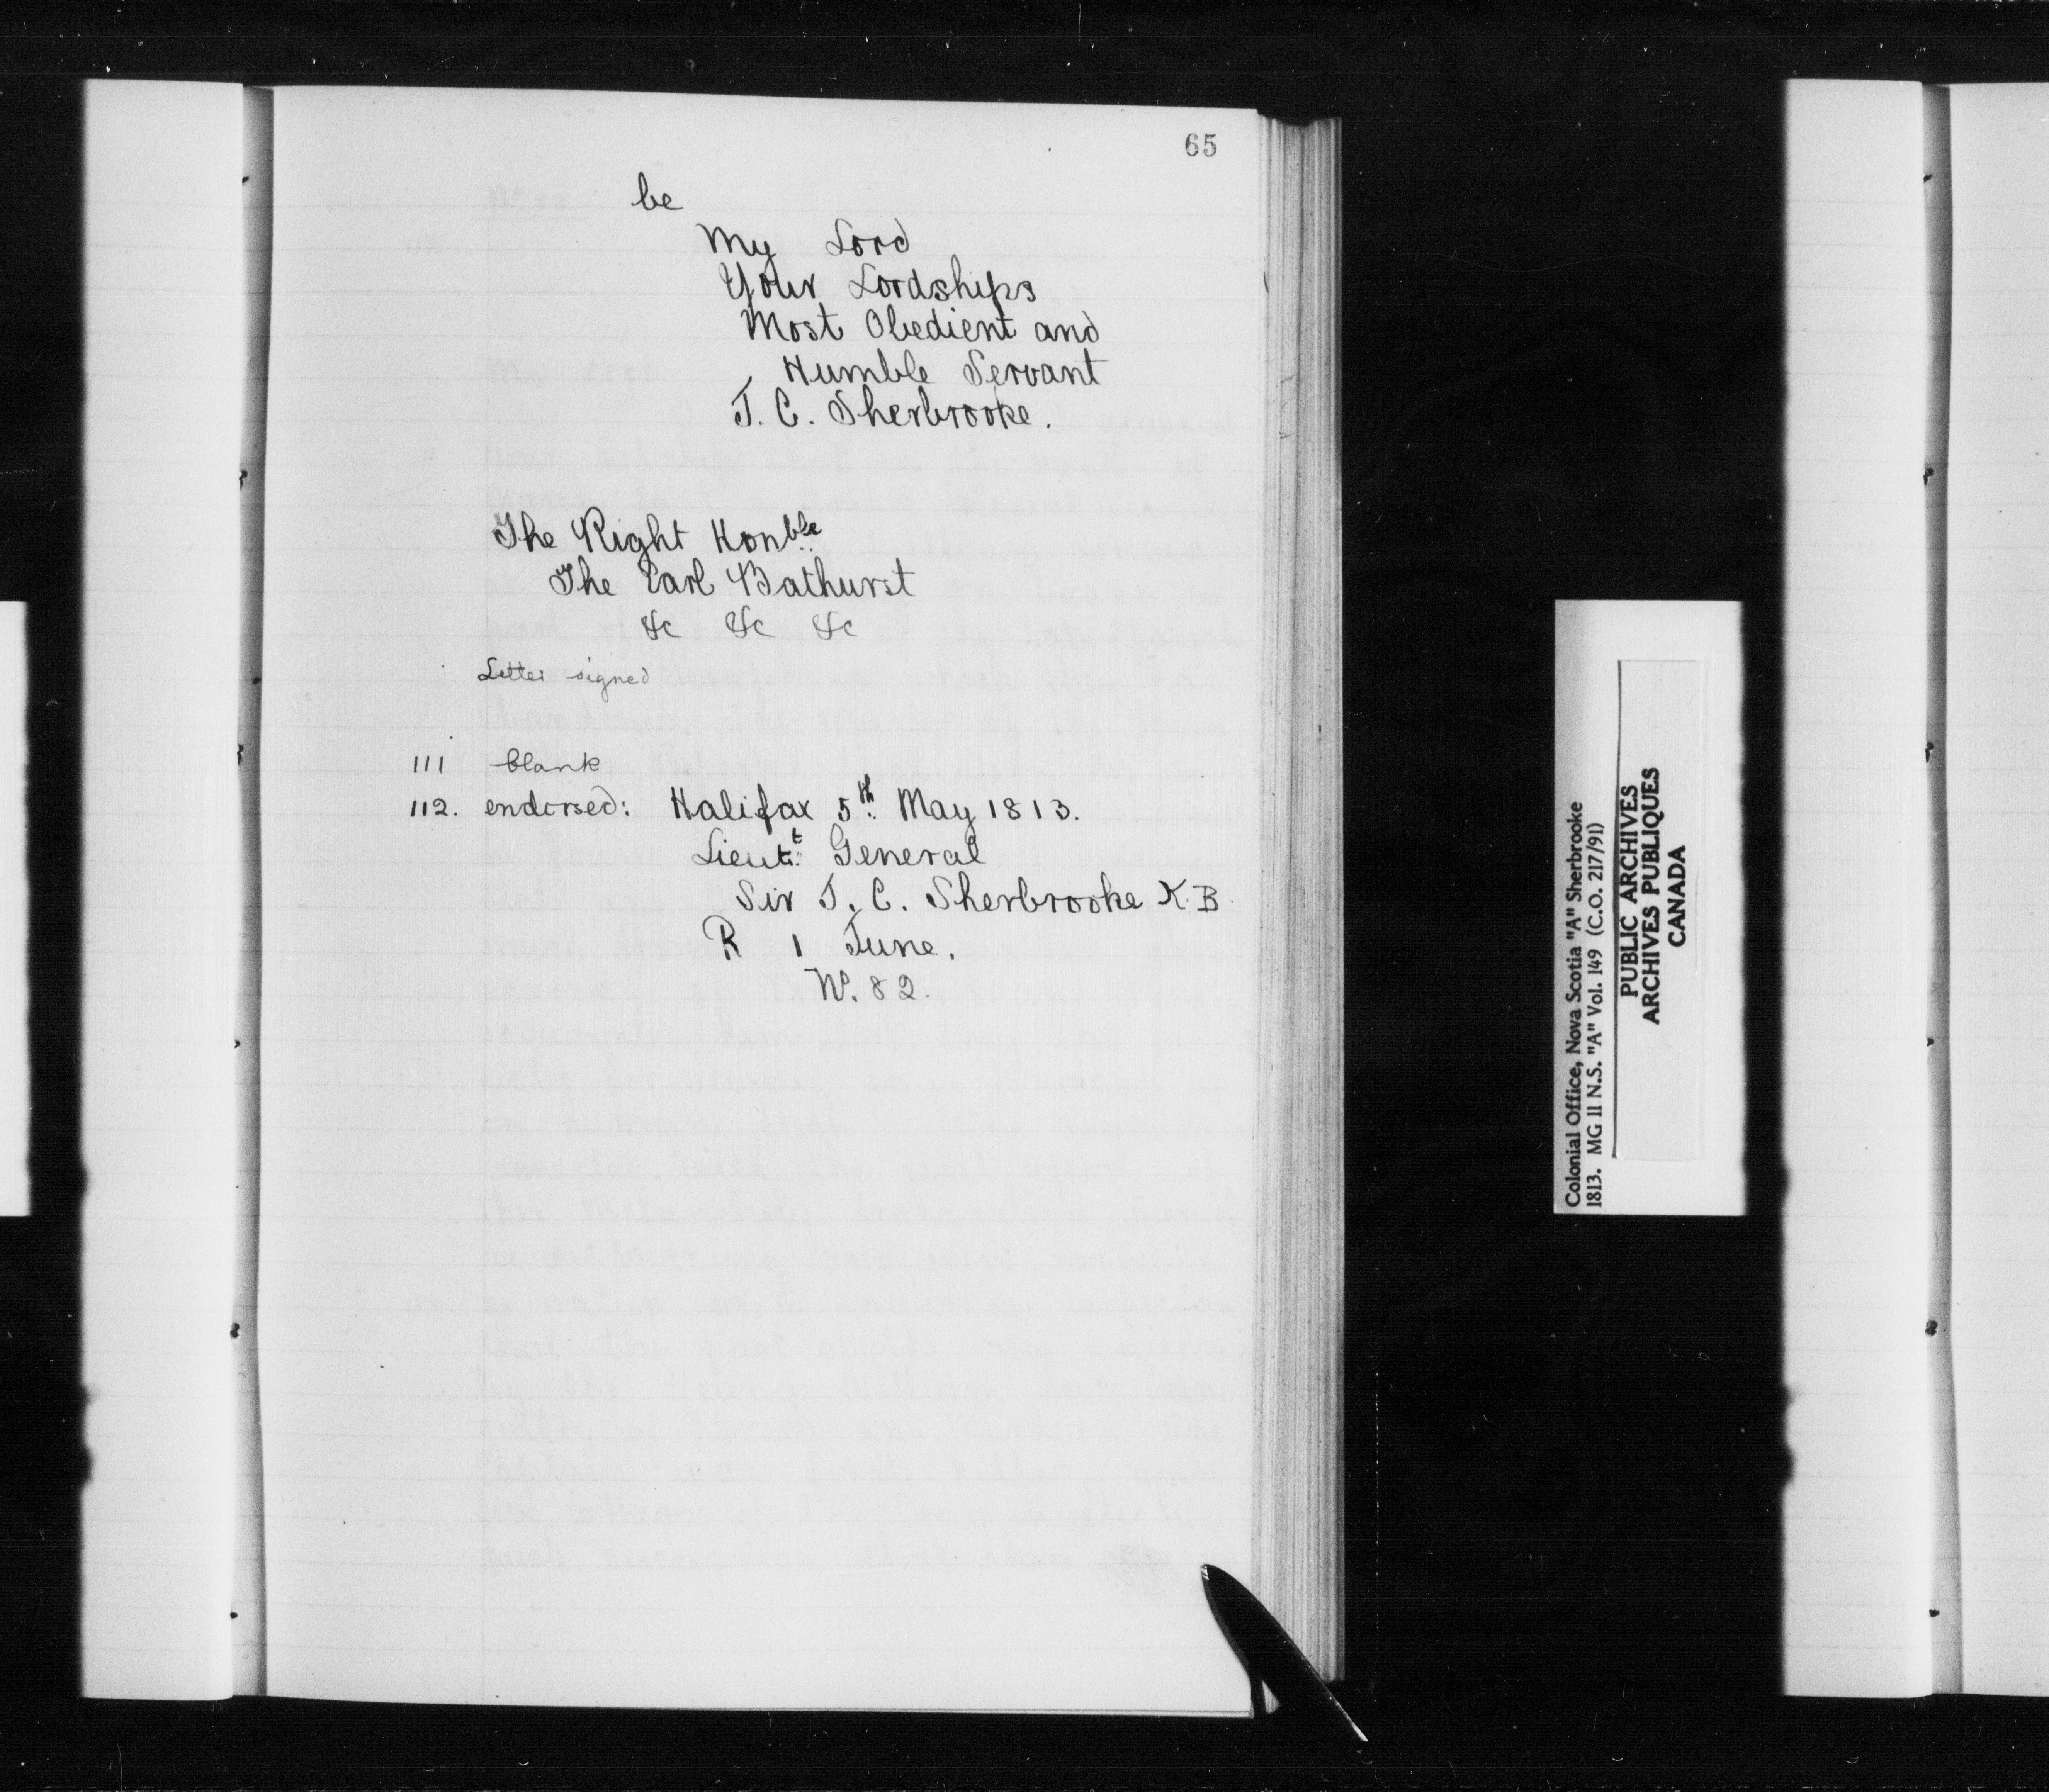 65
be
My Lord
Your Lordships
Most Obedient and
Humble Servant
J. C. Sherbrooke.
The Right Honble
The Earl Bathurst
&c &c &c
Letter signed
111 blank
112. endorsed: Halifax 5th May 1813.
Lieutt General
Sir J. C. Sherbrooke K.B.
R 1 June.
No. 82.
Colonial Office, Nova Scotia "A" Sherbrooke
1813. MG 11 N.S. "A" Vol. 149 (C.O. 217/91)
PUBLIC ARCHIVES
ARCHIVES PUBLIQUES
CANADA